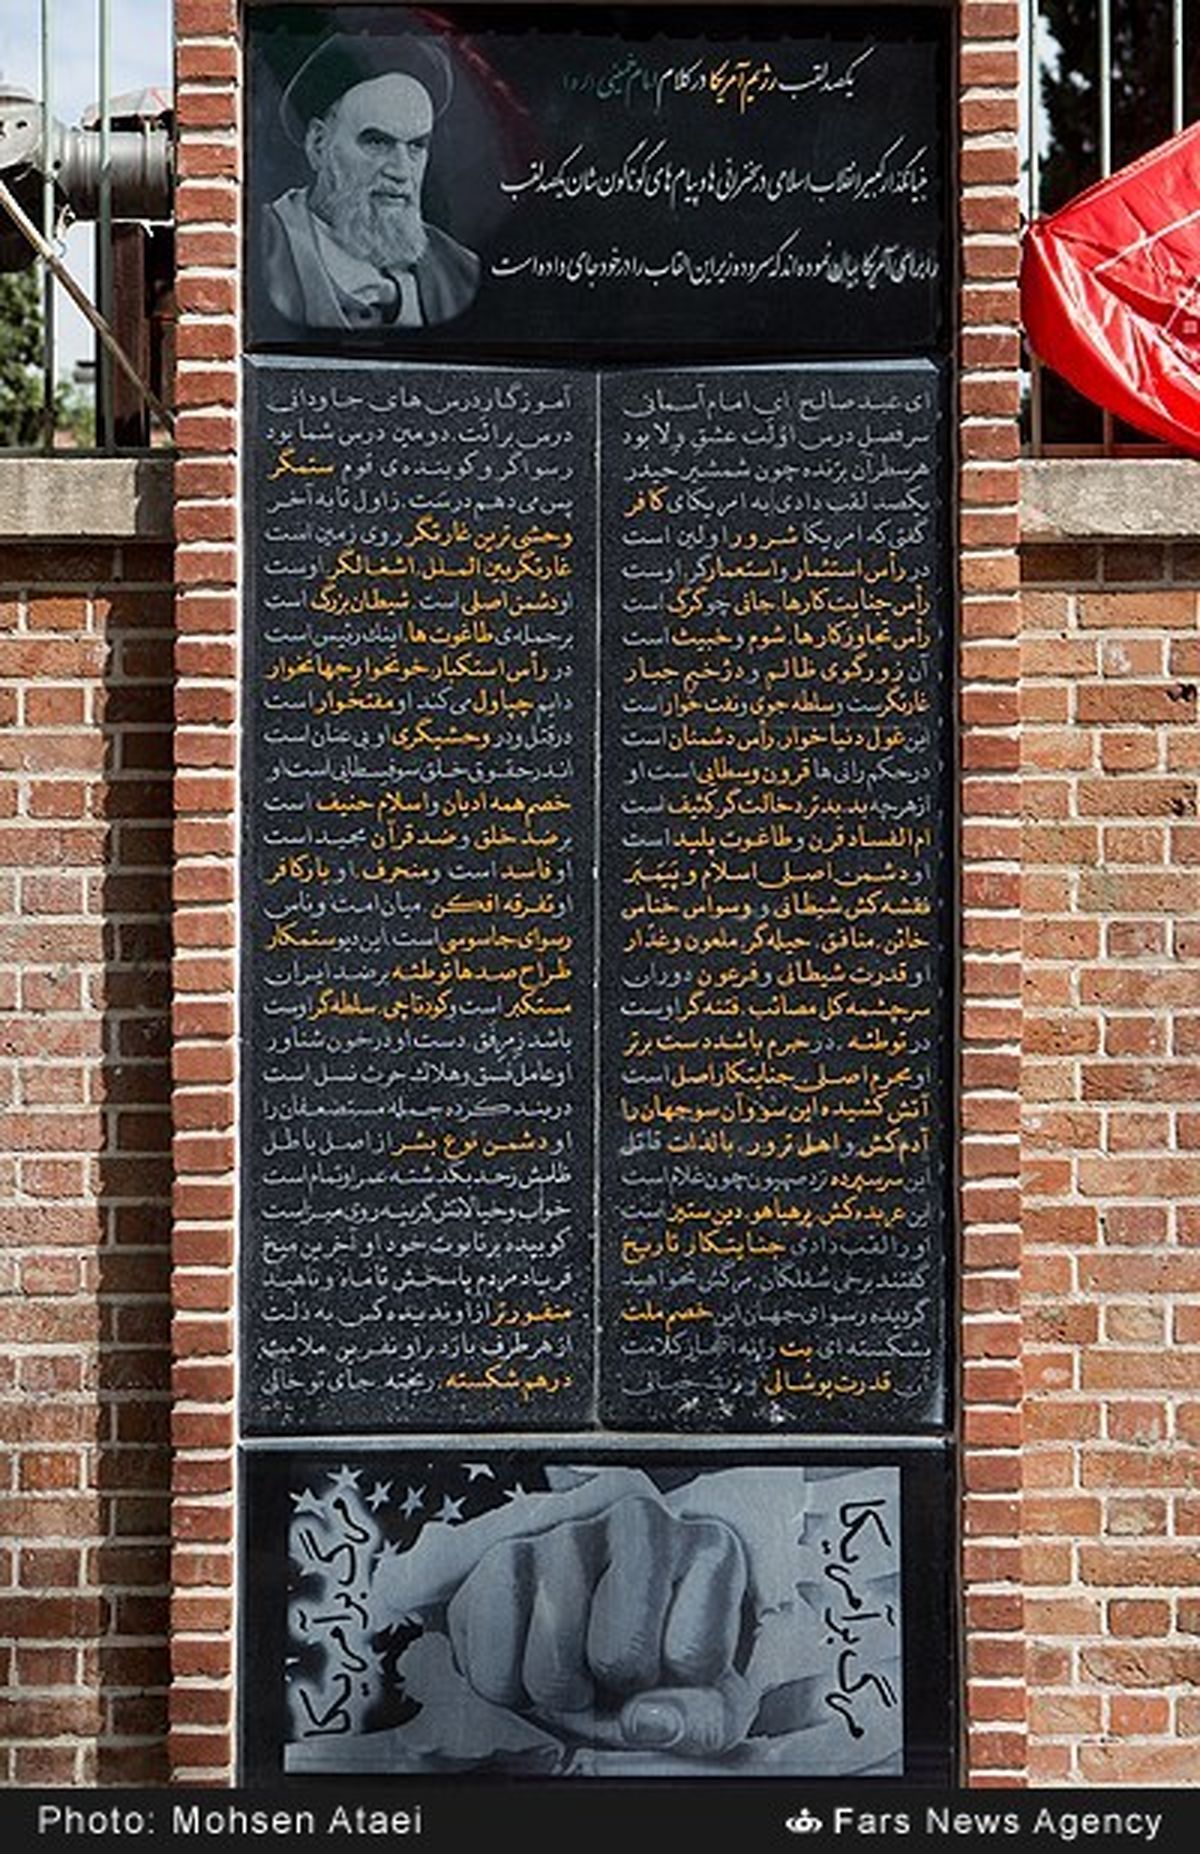 یکصد لقب رژیم آمریکا در کلام امام خمینی (ره)
بنیانگذار کبیر انقلاب اسلامی در سخنرانی ها و پیام های گوناگون شان یکصد لقب
را برای آمریکا بیان نموده اند که سروده زیر این القاب را در خود جای داده است
ای عبد صالح ای امام آسمانی
سرفصل درس اولت عشق و ولا بود
هر سطر آن برنده چون شمشیر حیدر
یکصد لقب دادی به امریکای کافر
گفتی که امریکا شرور اولین است
در رأس استثمار و استعمارگر اوست
رأس جنایت کارها، جانی چو گرگ است
رأس تجاوزکارها، شوم و خبیث است
آن زورگوی ظالم و دژخیم جبار
غارتگرست و سلطه جوی و نفت خوار است
این غول دنیا خوار، رأس دشمنان است
در حکم رانی ها قرون وسطایی است او
از هرچه بد، بدتر دخالت گر کثیف است
ام الفساد قرن و طاغوت پلید است
او دشمن اصلی اسلام و پیمبر
نقشه کش شیطانی و وسواس خناس
خائن، منافق، حیله گر، ملعون و غدار
او قدرت شیطانی و فرعون دوران
سرچشمه کل مصائب، فتنه گر اوست
در توطئه، در جرم باشد دست برتر
او مجرم اصلی جنایتکار اصل است
آتش کشیده این سو و آن سو جهان را
آدم کش و اهل ترور، بالذات قاتل
این سرسپرده نزد صهیون چون غلام است
این عربده کش، پرهیاهو، دین ستیز است
او را لقب دادی جنایتکار تاریخ
گفتند برخی شغلکان، مرگش نخواهید
گردیده رسوای جهان این خصم ملت
بشکسته ای بت را به کلامت
قدرت پوشالی
آموزگار درس های جاودانی
درس برائت، دومین درس شما بود
رسواگر و کوبنده ی قوم ستمگر
پس می دهم درست، ز اول تا به آخر
وحشی ترین غارتگر روی زمین است
غارتگر بین الملل، اشغالگر اوست
او دشمن اصلی است، شیطان بزرگ است
بر جمله ی طاغوت ها، اینک رئیس است
در رأس استکبار، خونخوار جهانخوار
دایم چپاول می کند او مفتخوار است
در قتل و در وحشیگری او بی عنان است
اندر حقوق خلق سوفسطایی است او
خصم همه ادیان و اسلام حنیف است
بر ضد خلق و ضد قرآن مجید است
او فاسد است و منحرف، او یار کافر
او تفرقه افکن، میان امت و ناس
رسوای جاسوسی است، این دیو ستمکار
طراح صدها توطئه بر ضد ایران
مستکبر است و کودتاچی، سلطه گر اوست
باشد ز مرفق، دست او در خون شناور
او عامل فسق و هلاک حرث نسل است
در بند کرده جمله مستضعفان را
او دشمن نوع بشر از اصل باطل
ظلمش ز حد بگذشته عمر او تمام است
خواب و خیالاتش گزینه روی میز است
کوبیده بر تابوت خود او آخرین میخ
فریاد مردم پاسخش تا ماه و ناهید
منفورتر از او ندیده کس به ذلت
از هر طرف بارد بر او نفرین ملامت
در هم شکسته، ریخته جای تو خالی
مرگ بر آمریکا
مرگ بر آمریکا
Photo: Mohsen Ataei
Fars News Agency